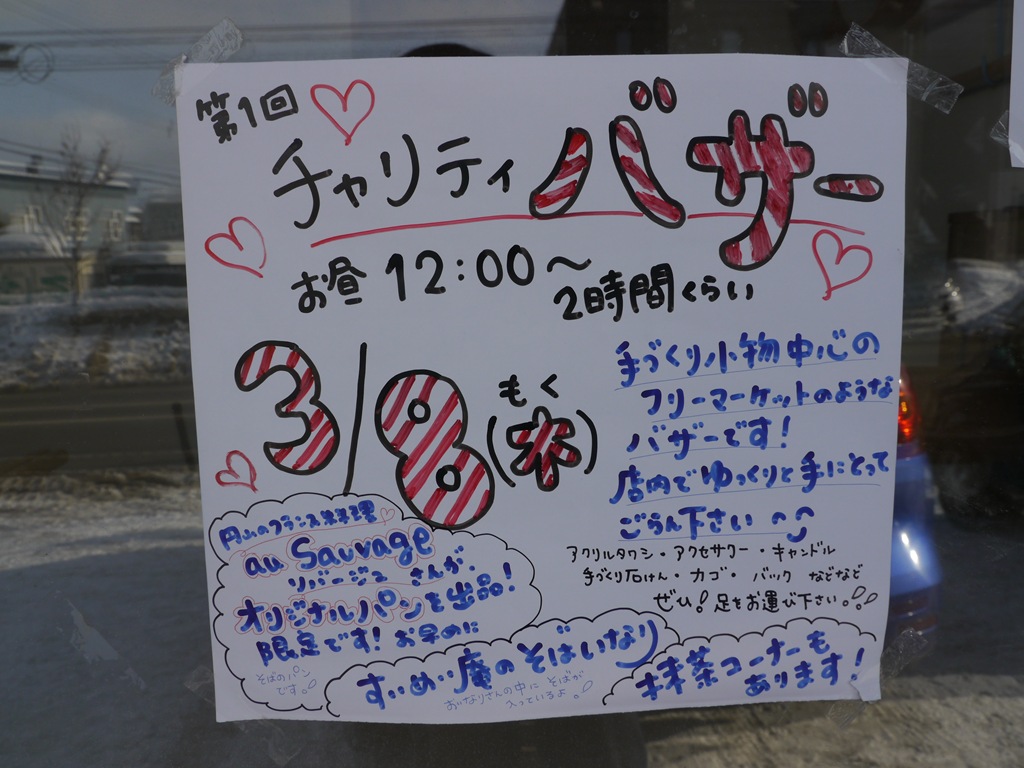 第1回
チャリティ バザー
お昼 12:00～
2時間くらい
3/8(木)
もく
手づくり小物中心の
フリーマーケットのような
バザーです!
店内でゆっくりと手にとって
ごらん下さい
アクリルタワシ・アクセサリー・キャンドル
手づくり石けん・カゴ・バック などなど
ぜひ!足をお運び下さい。
円山のフランス料理
au Sauvage
リバージュ さんが、
オリジナルパンを出品!
限定です! お早めに
そばのパン
です。
すぃめぃ庵のそばいなり
おいなりさんの中に そばが
入っているよ。
抹茶コーナーも
あります!